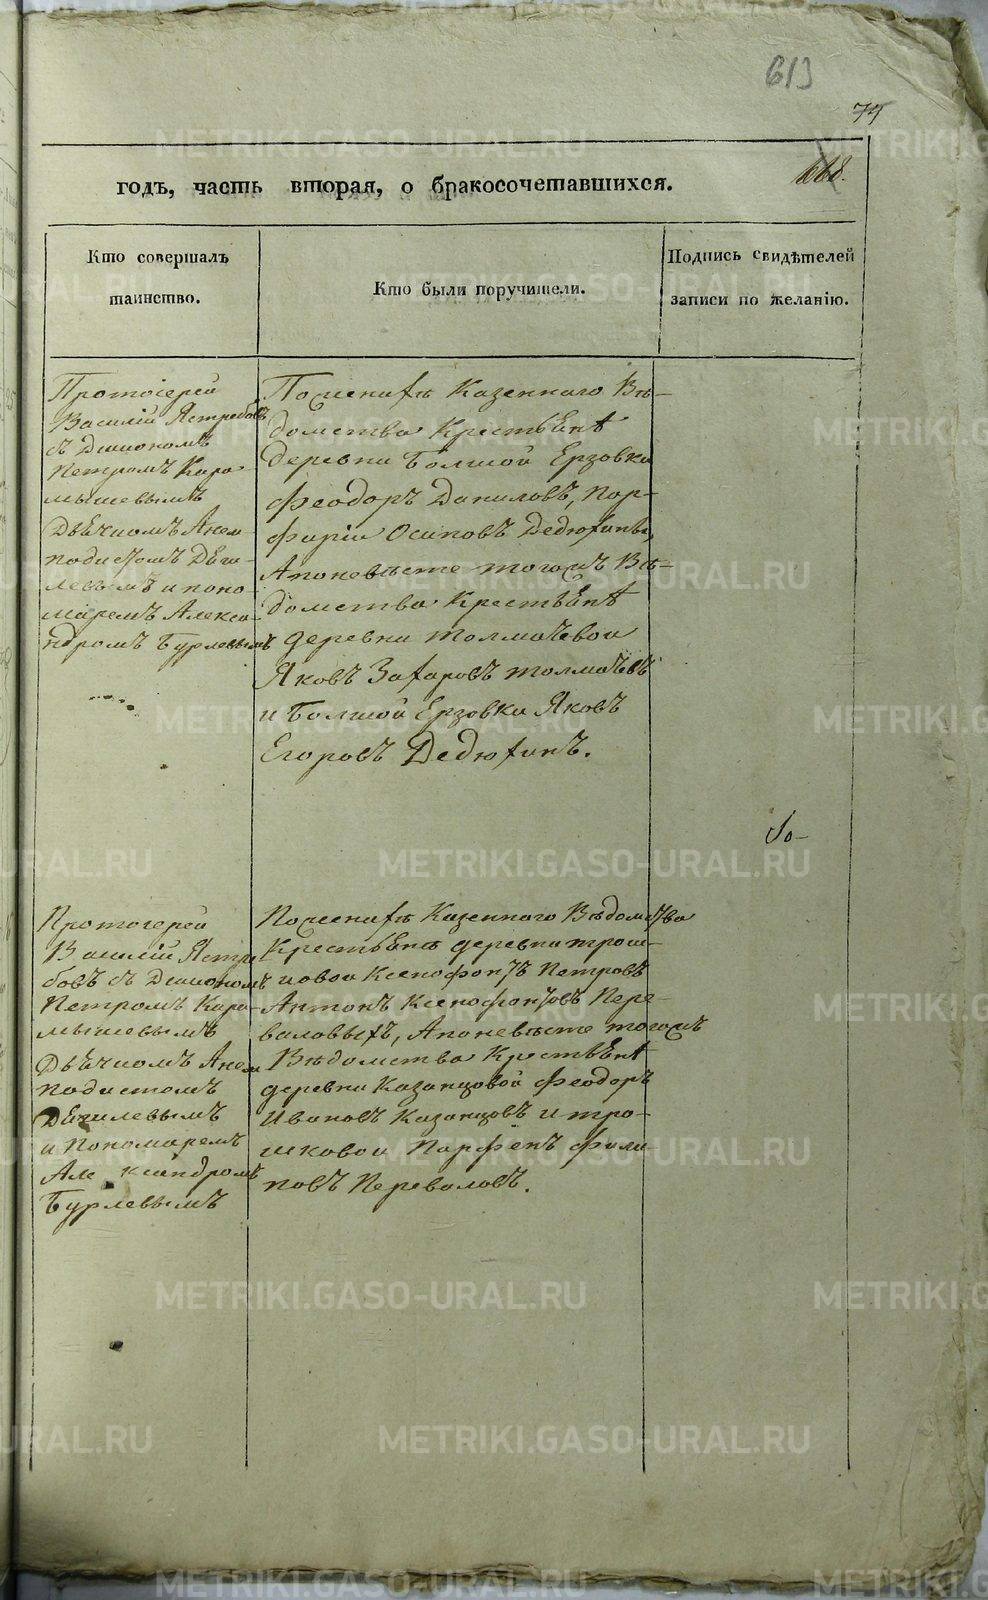 613
74
668.
годъ, часть вторая, о бракосочетавшихся.
Кто совершалъ
таинство.
Кто были поручители.
Подпись свидѣтелей
записи по желанію.
Протоіерей
Василій Ястребовъ
съ Диакономъ
Петромъ Кара
мышевымъ
Дьѣчкомъ Анем
подистомъ Дѣги-
левымъ и поно
маремъ Алекса
ндромъ Бурлевымъ
По женихѣ Казеннаго Вѣ-
домства Крестьѣнѣ
деревни Болшой Ерзовки
Феодоръ Даниловъ, Пор-
фирій Осиповъ Дедюхины,
Апоневѣсте тогожъ Вѣ-
домства Крестьѣнѣ
деревни толмачевой
Яковъ Захаровъ толмачевъ
и Болшой Ерзовки Яковъ
Егоровъ Дедюхинъ.
Протоіерей
Василій Ястре
бовъ съ Диакономъ
Петромъ Кара-
мышевымъ
Дьѣчкомъ Анем
подистомъ
Дѣгилевымъ
и Пономаремъ
Александромъ
Бурлевымъ
По женихѣ Казенного Вѣдомства
Крестьѣнѣ деревни трош-
ковой Ксенофонтъ Петровъ
Антонъ Ксенофонтовъ Пере-
валовыхъ, Апоневѣсте тогожъ
Вѣдомства Крестьѣнѣ
деревни Казанцовой Феодоръ
Ивановъ Казанцовъ и тро-
шковой Парфенъ Фили-
повъ Переваловъ.
METRIKI.GASO-URAL.RU